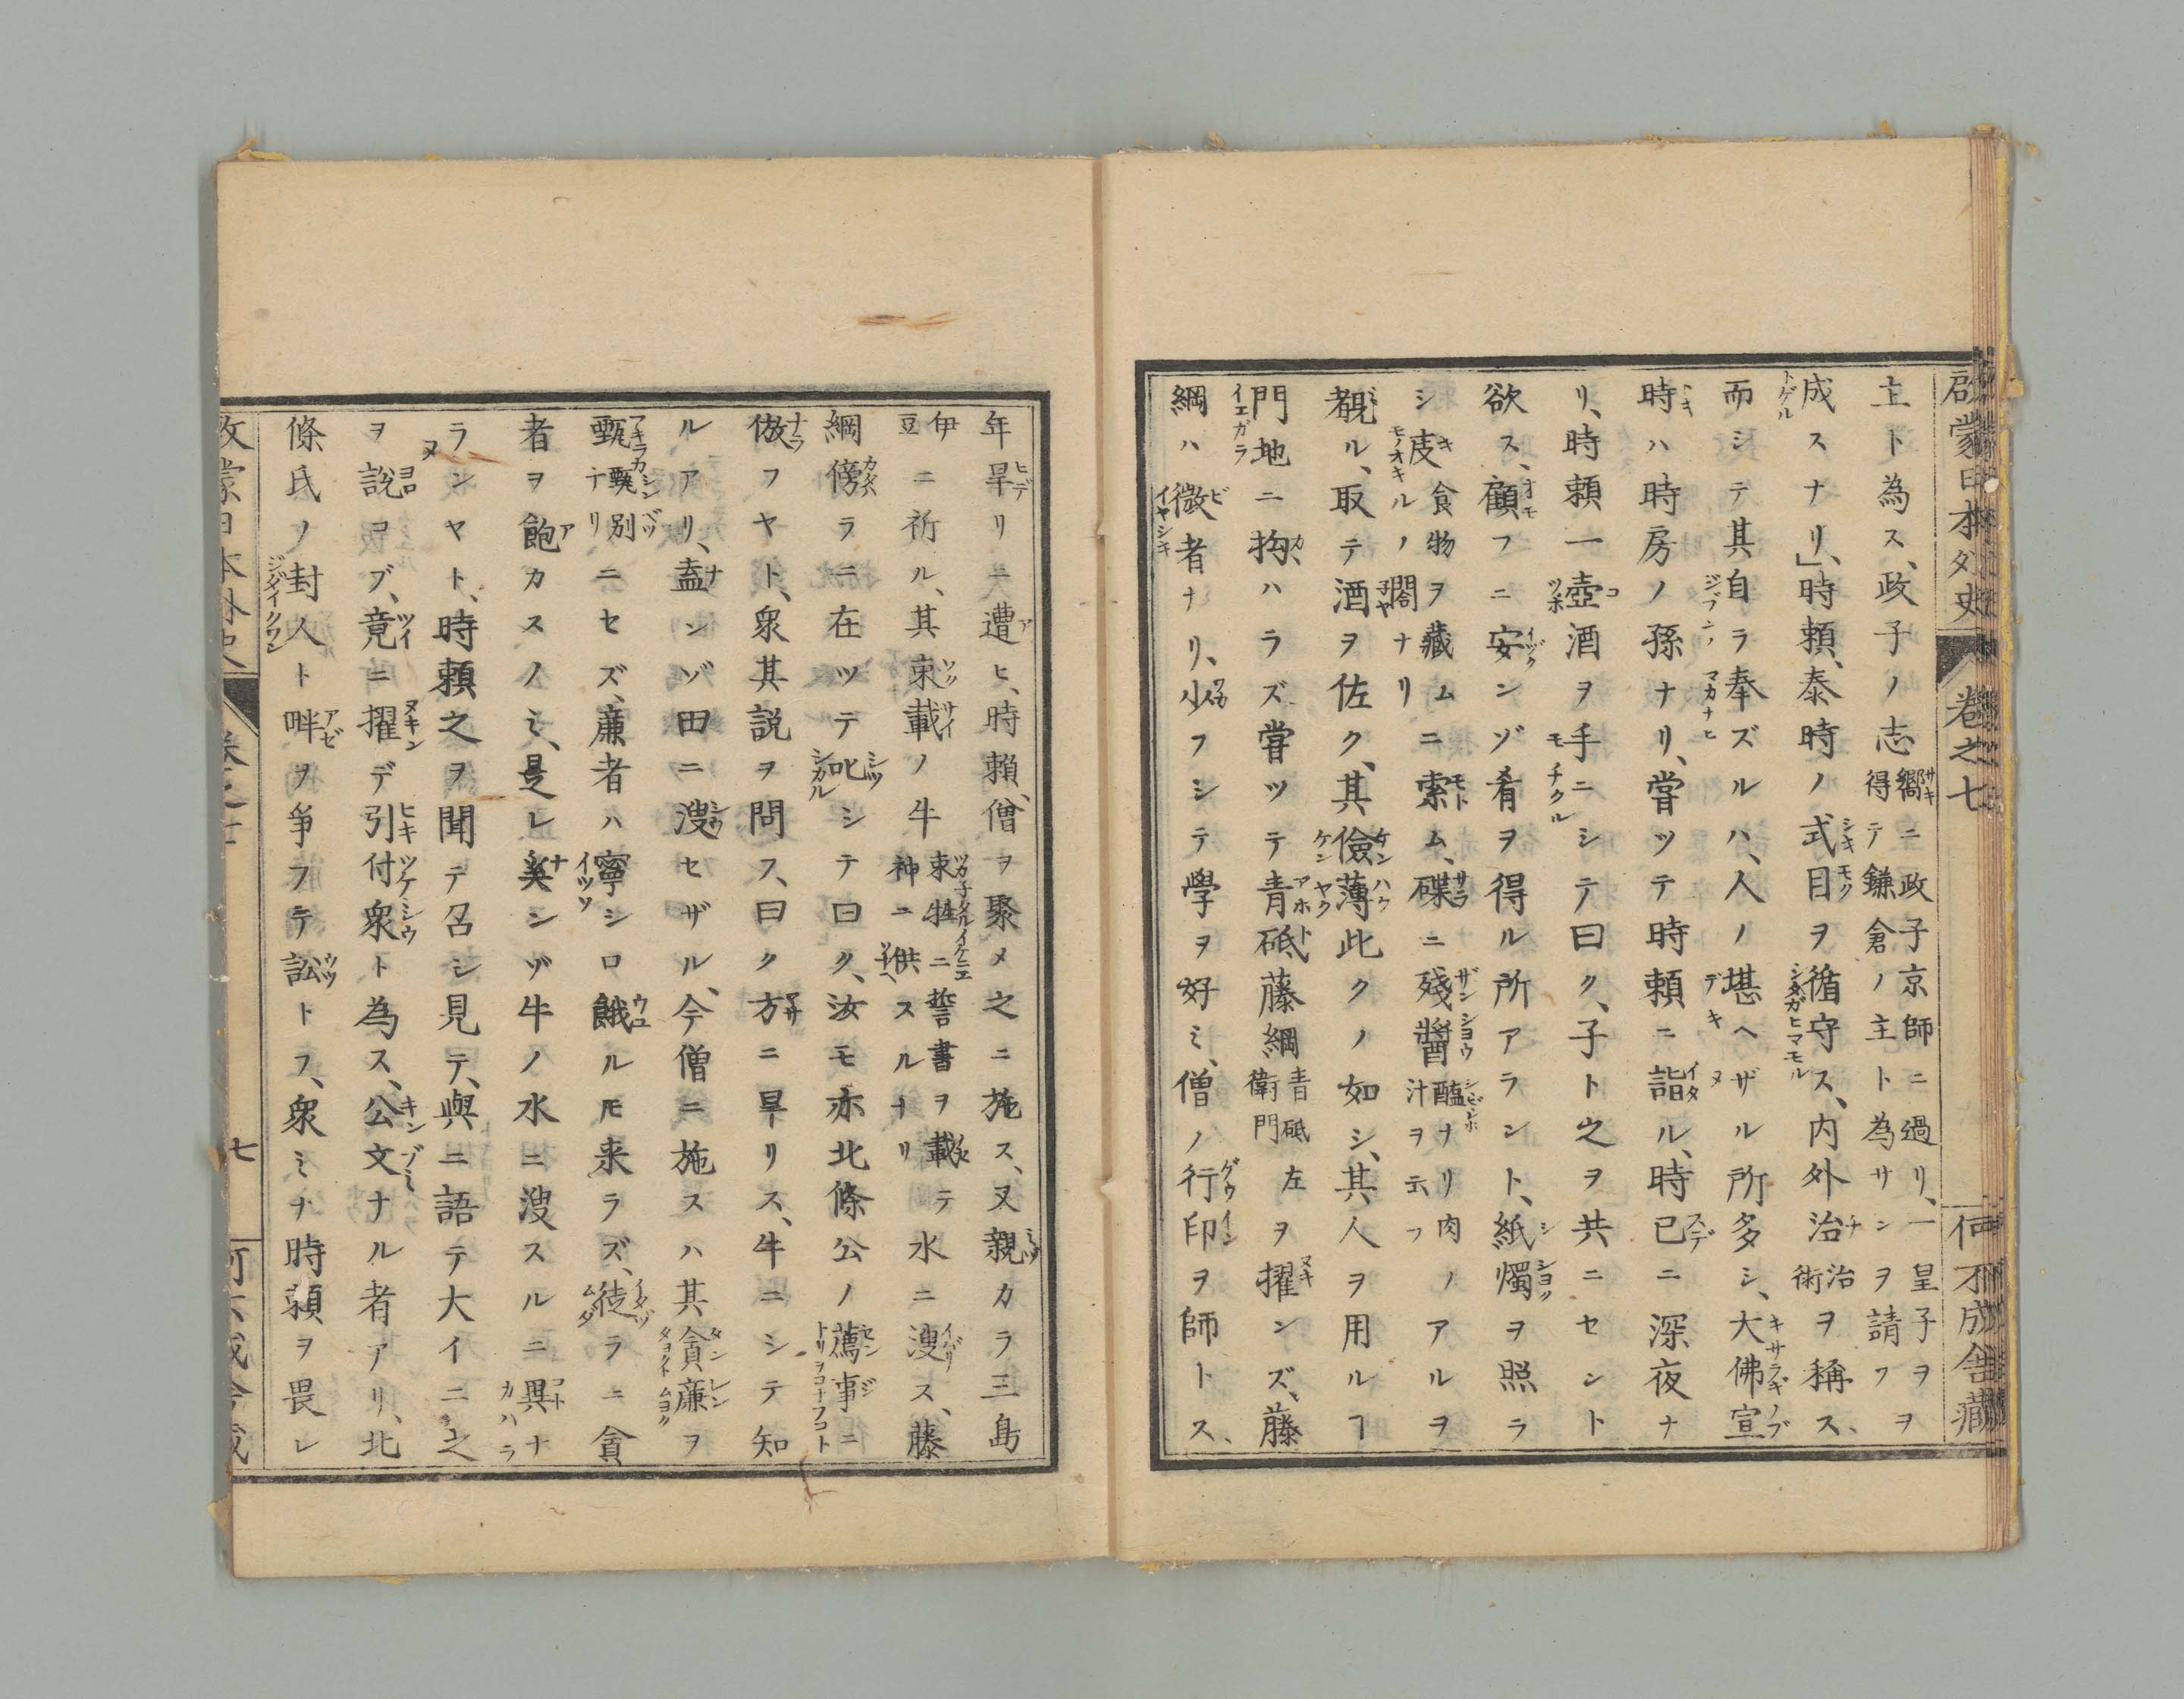 啓蒙日本外史 卷之七 何不成舎藏
主ト為ス、政子ノ志嚮ニ政子京師ニ過リ、一皇子ヲ得テ鎌倉ノ主ト為サンヲ請フヲ
成スナリ」、時頼、泰時ノ式目ヲ循守ス、内外治治術ヲ稱ス、
而シテ其自ラ奉ズルハ、人ノ堪ヘザル所多シ、大佛宣
時ハ時房ノ孫ナリ、嘗ツテ時頼ニ詣ル、時已ニ深夜ナ
リ、時頼一壺酒ヲ手ニシテ曰ク、子ト之ヲ共ニセント
欲ス、顧フニ安ンゾ肴ヲ得ル所アラント、紙燭ヲ照ラ
シ庋食物ヲ藏ムルノ閣ナリニ索ム、碟ニ殘醬醢ナリ肉ノ汁ヲ云フノアルヲ
覩ル、取テ酒ヲ佐ク、其儉薄此クノ如シ、其人ヲ用ルヿ
門地ニ拘ハラズ嘗ツテ青砥藤綱青砥左衛門ヲ擢ンズ、藤
綱ハ微者ナリ、少フシテ學ヲ好ミ、僧ノ行印ヲ師トス、
年旱リニ遭ヒ、時頼、僧ヲ聚メ之ニ施ス、又親カラ三島
伊豆ニ祈ル、其束載ノ牛束牲ニ誓書ヲ載テ神ニ供スルナリ水ニ溲ス、藤
綱傍ラニ在ツテ叱シテ曰ク、汝モ亦北條公ノ薦事ニ
倣フヤト、衆其説ヲ問ス、曰ク方ニ旱リス、牛ニシテ知
ルアリ、盍ンゾ田ニ溲セザル、今僧ニ施スハ其貪廉ヲ
甄甄別ナリニセズ、廉者ハ寧シロ餓ルモ来ラズ、徒ラニ貪
者ヲ飽カスノミ、是レ奚ンゾ牛ノ水ニ溲スルニ異ナ
ランヤト、時頼之ヲ聞テ召シ見テ、與ニ語テ大イニ之
ヲ説コブ、竟ニ擢デ引付衆ト為ス、公文ナル者アリ、北
條氏ノ封人ト畔ヲ爭フテ訟トフ、衆ミナ時頼ヲ畏レ
七